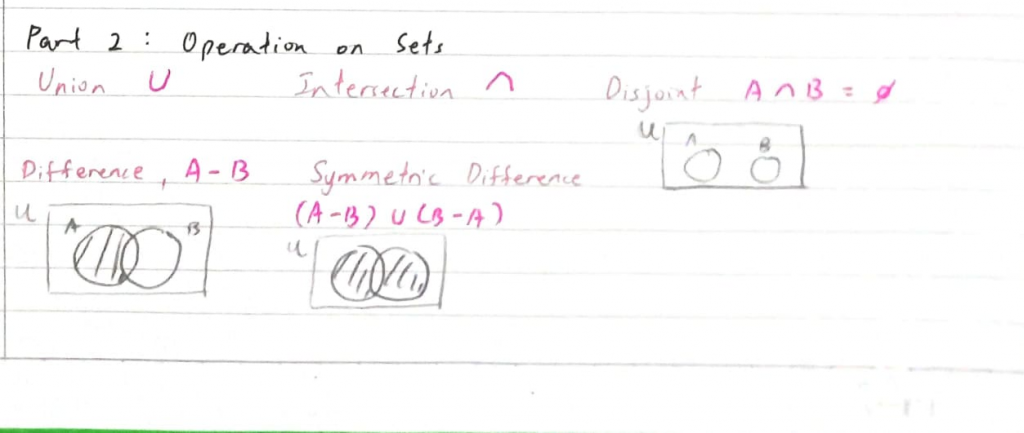 Part 2 : Operation on Sets
Union ∪ Intersection ∩ Disjoint A ∩ B = ∅
U A B
Difference, A - B Symmetric Difference
(A-B) ∪ (B-A)
U A B
U